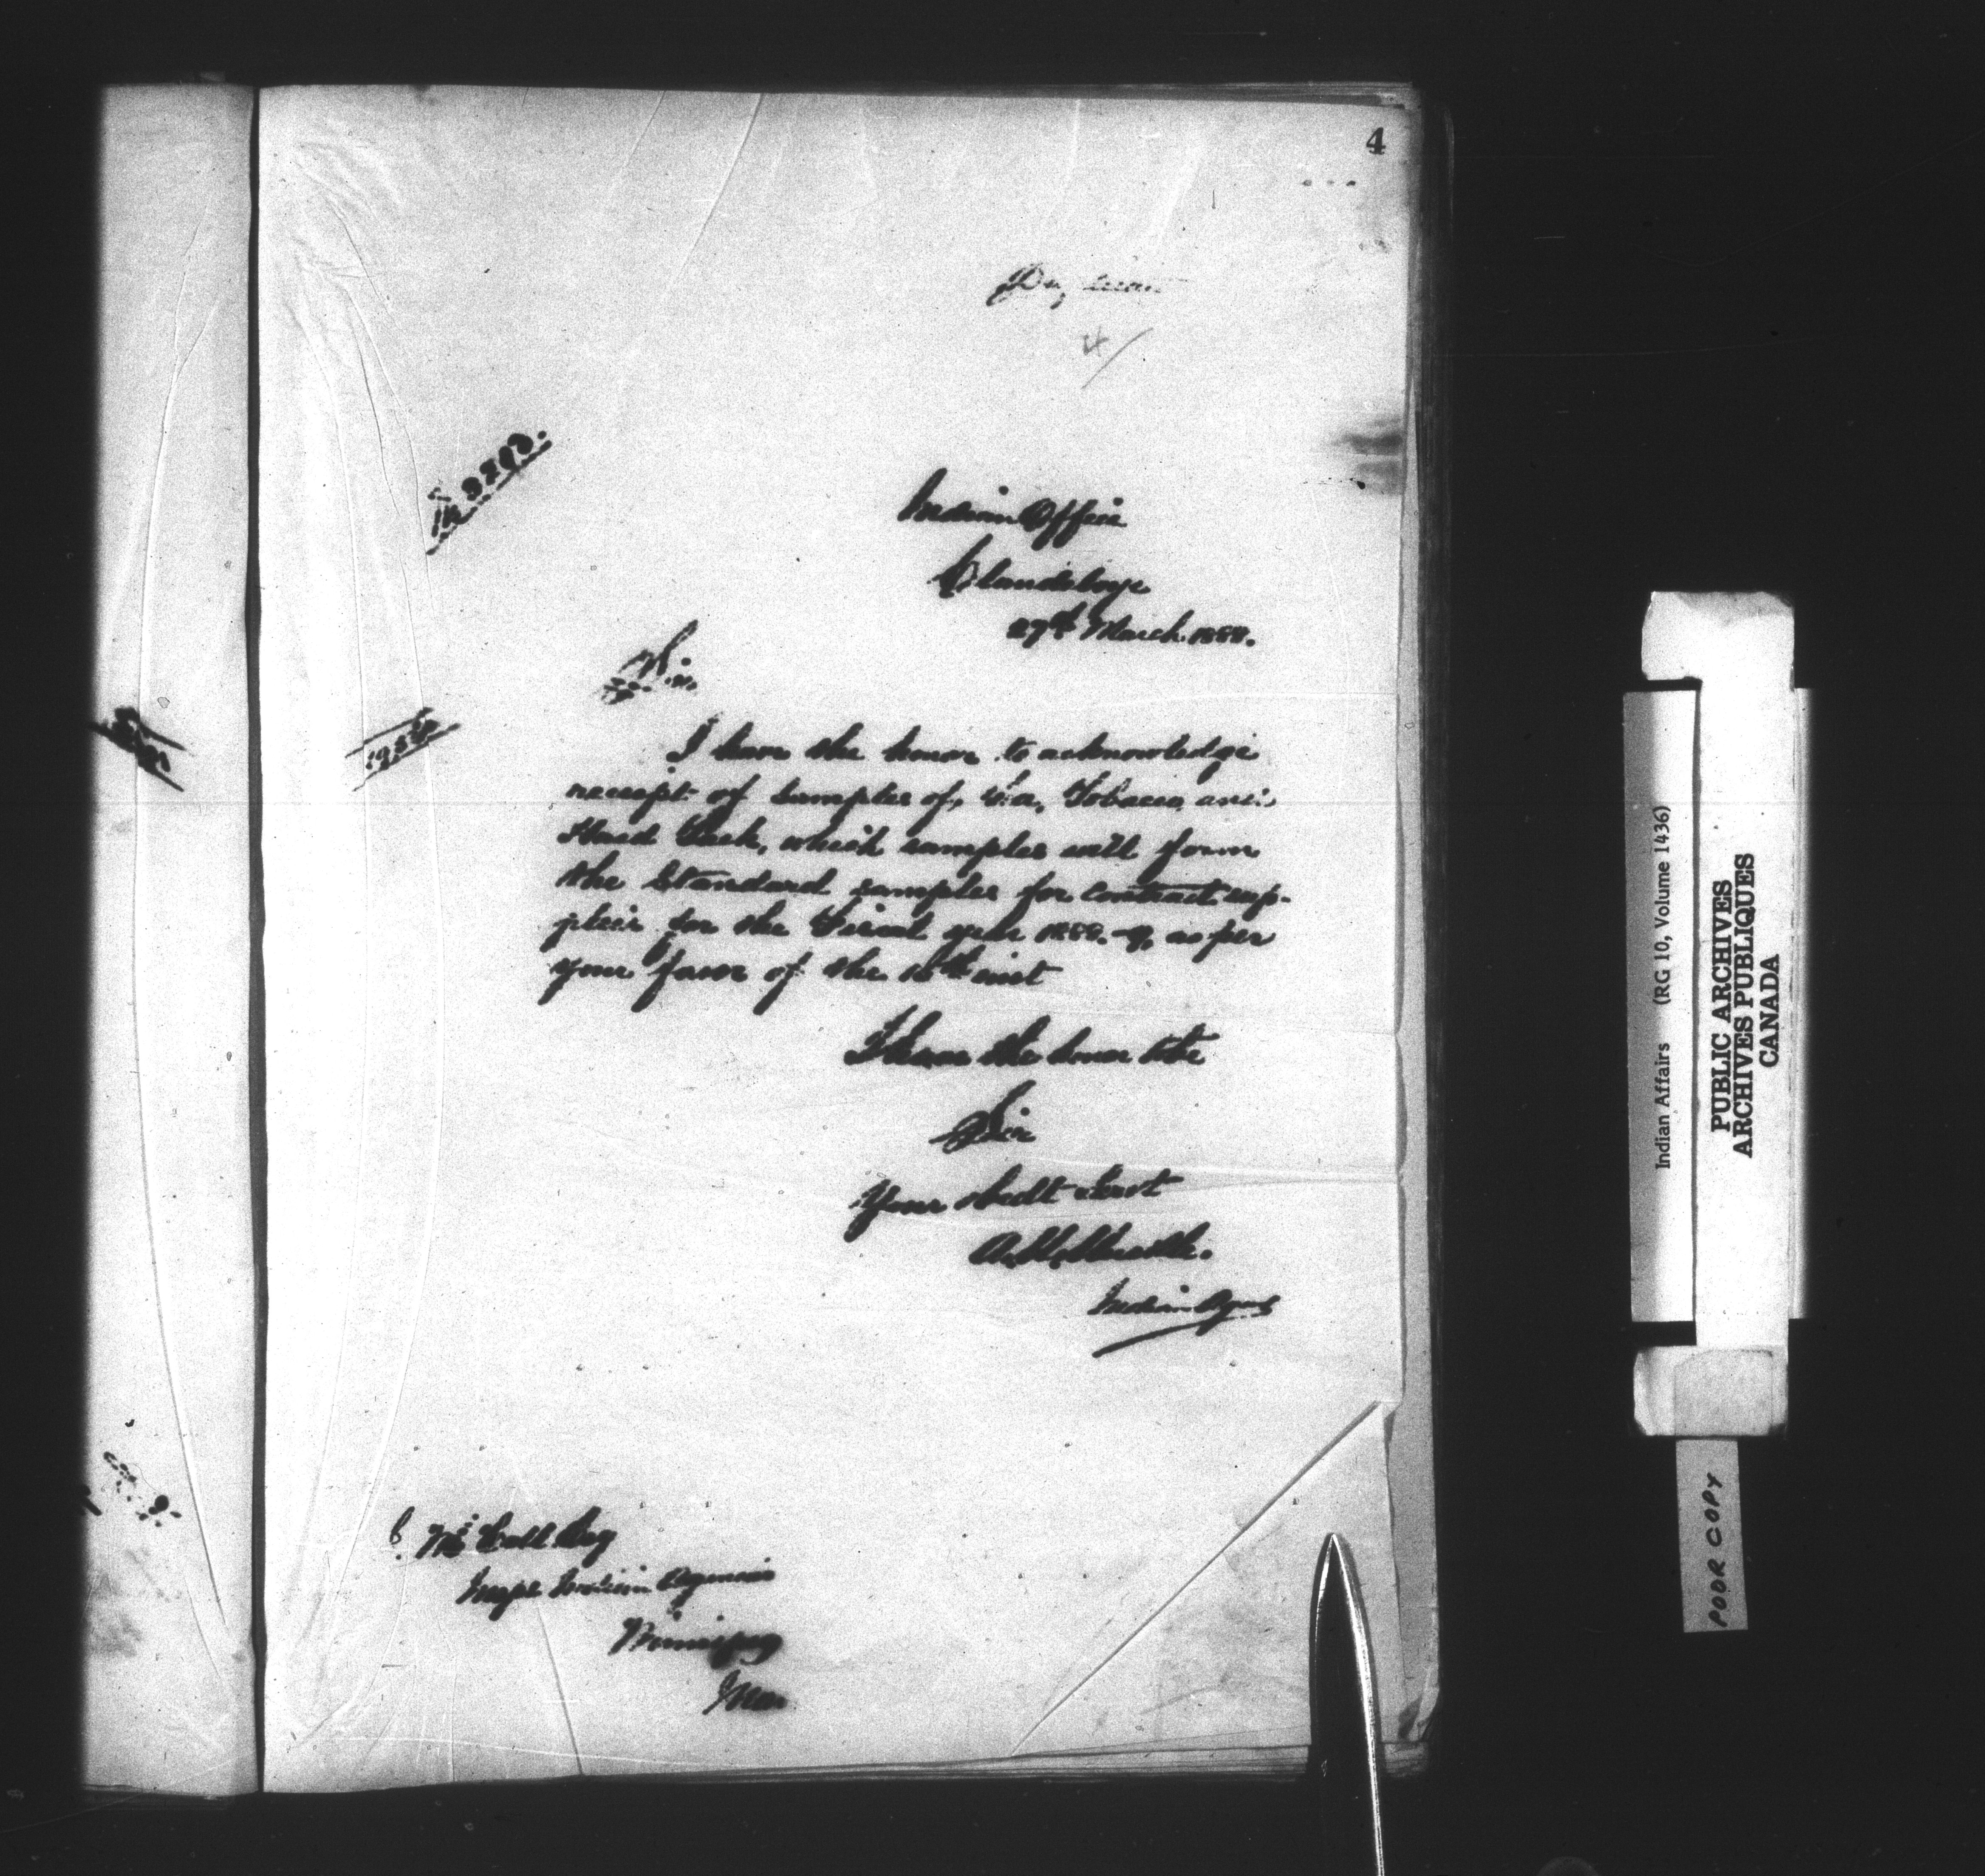 4
4/
Indian Office
Clandeboye
27th March 1888.
Sir
I have the honor to acknowledge
receipt of samples of, Tea, Tobacco, and
Hard Tack, which samples will form
the Standard samples for contract sup-
plies for the Fiscal year 1888-9, as per
your favor of the 15th inst
I have the honor to be
Sir
Your obedt Servt
A. M. Muckle.
Indian Agent
E. McColl Esq
Inspt Indian Agencies
Winnipeg
Man
Indian Affairs (RG 10, Volume 1436)
PUBLIC ARCHIVES
ARCHIVES PUBLIQUES
CANADA
POOR COPY